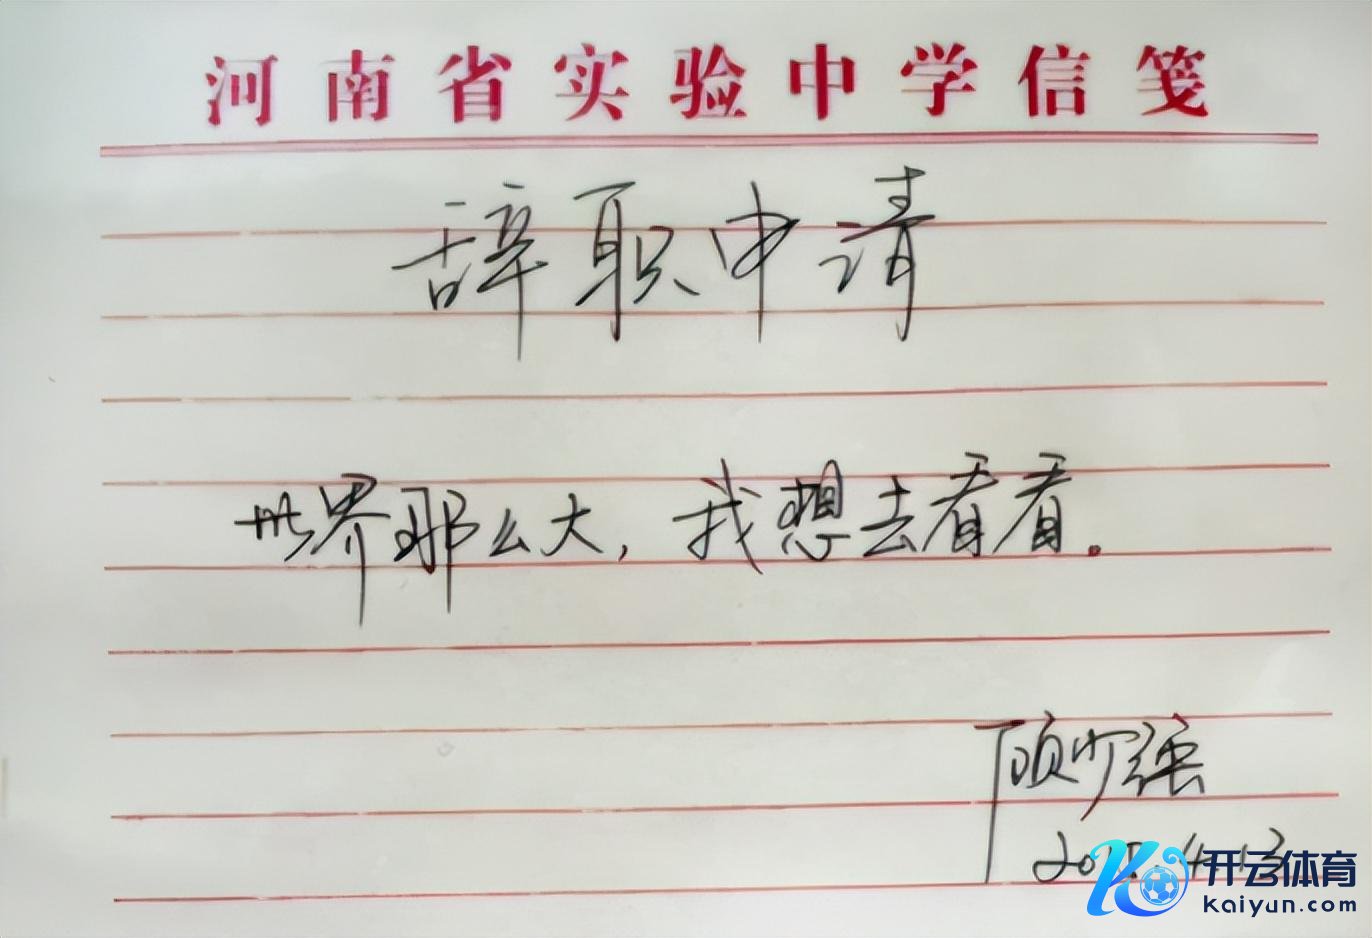 河南省实验中学信笺
辞职申请
世界那么大，我想去看看。
顾少强
开云体育
Kaiyun.com